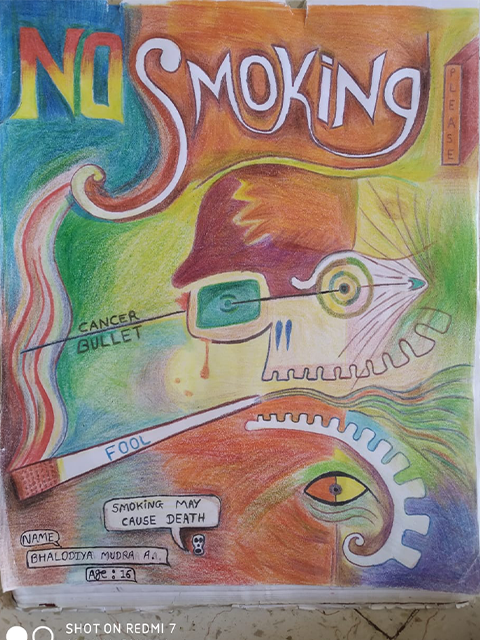 NO SMOKING
PLEASE
CANCER
BULLET
FOOL
SMOKING MAY
CAUSE DEATH
NAME
BHALODIYA MUDRA A.
Age : 16
SHOT ON REDMI 7